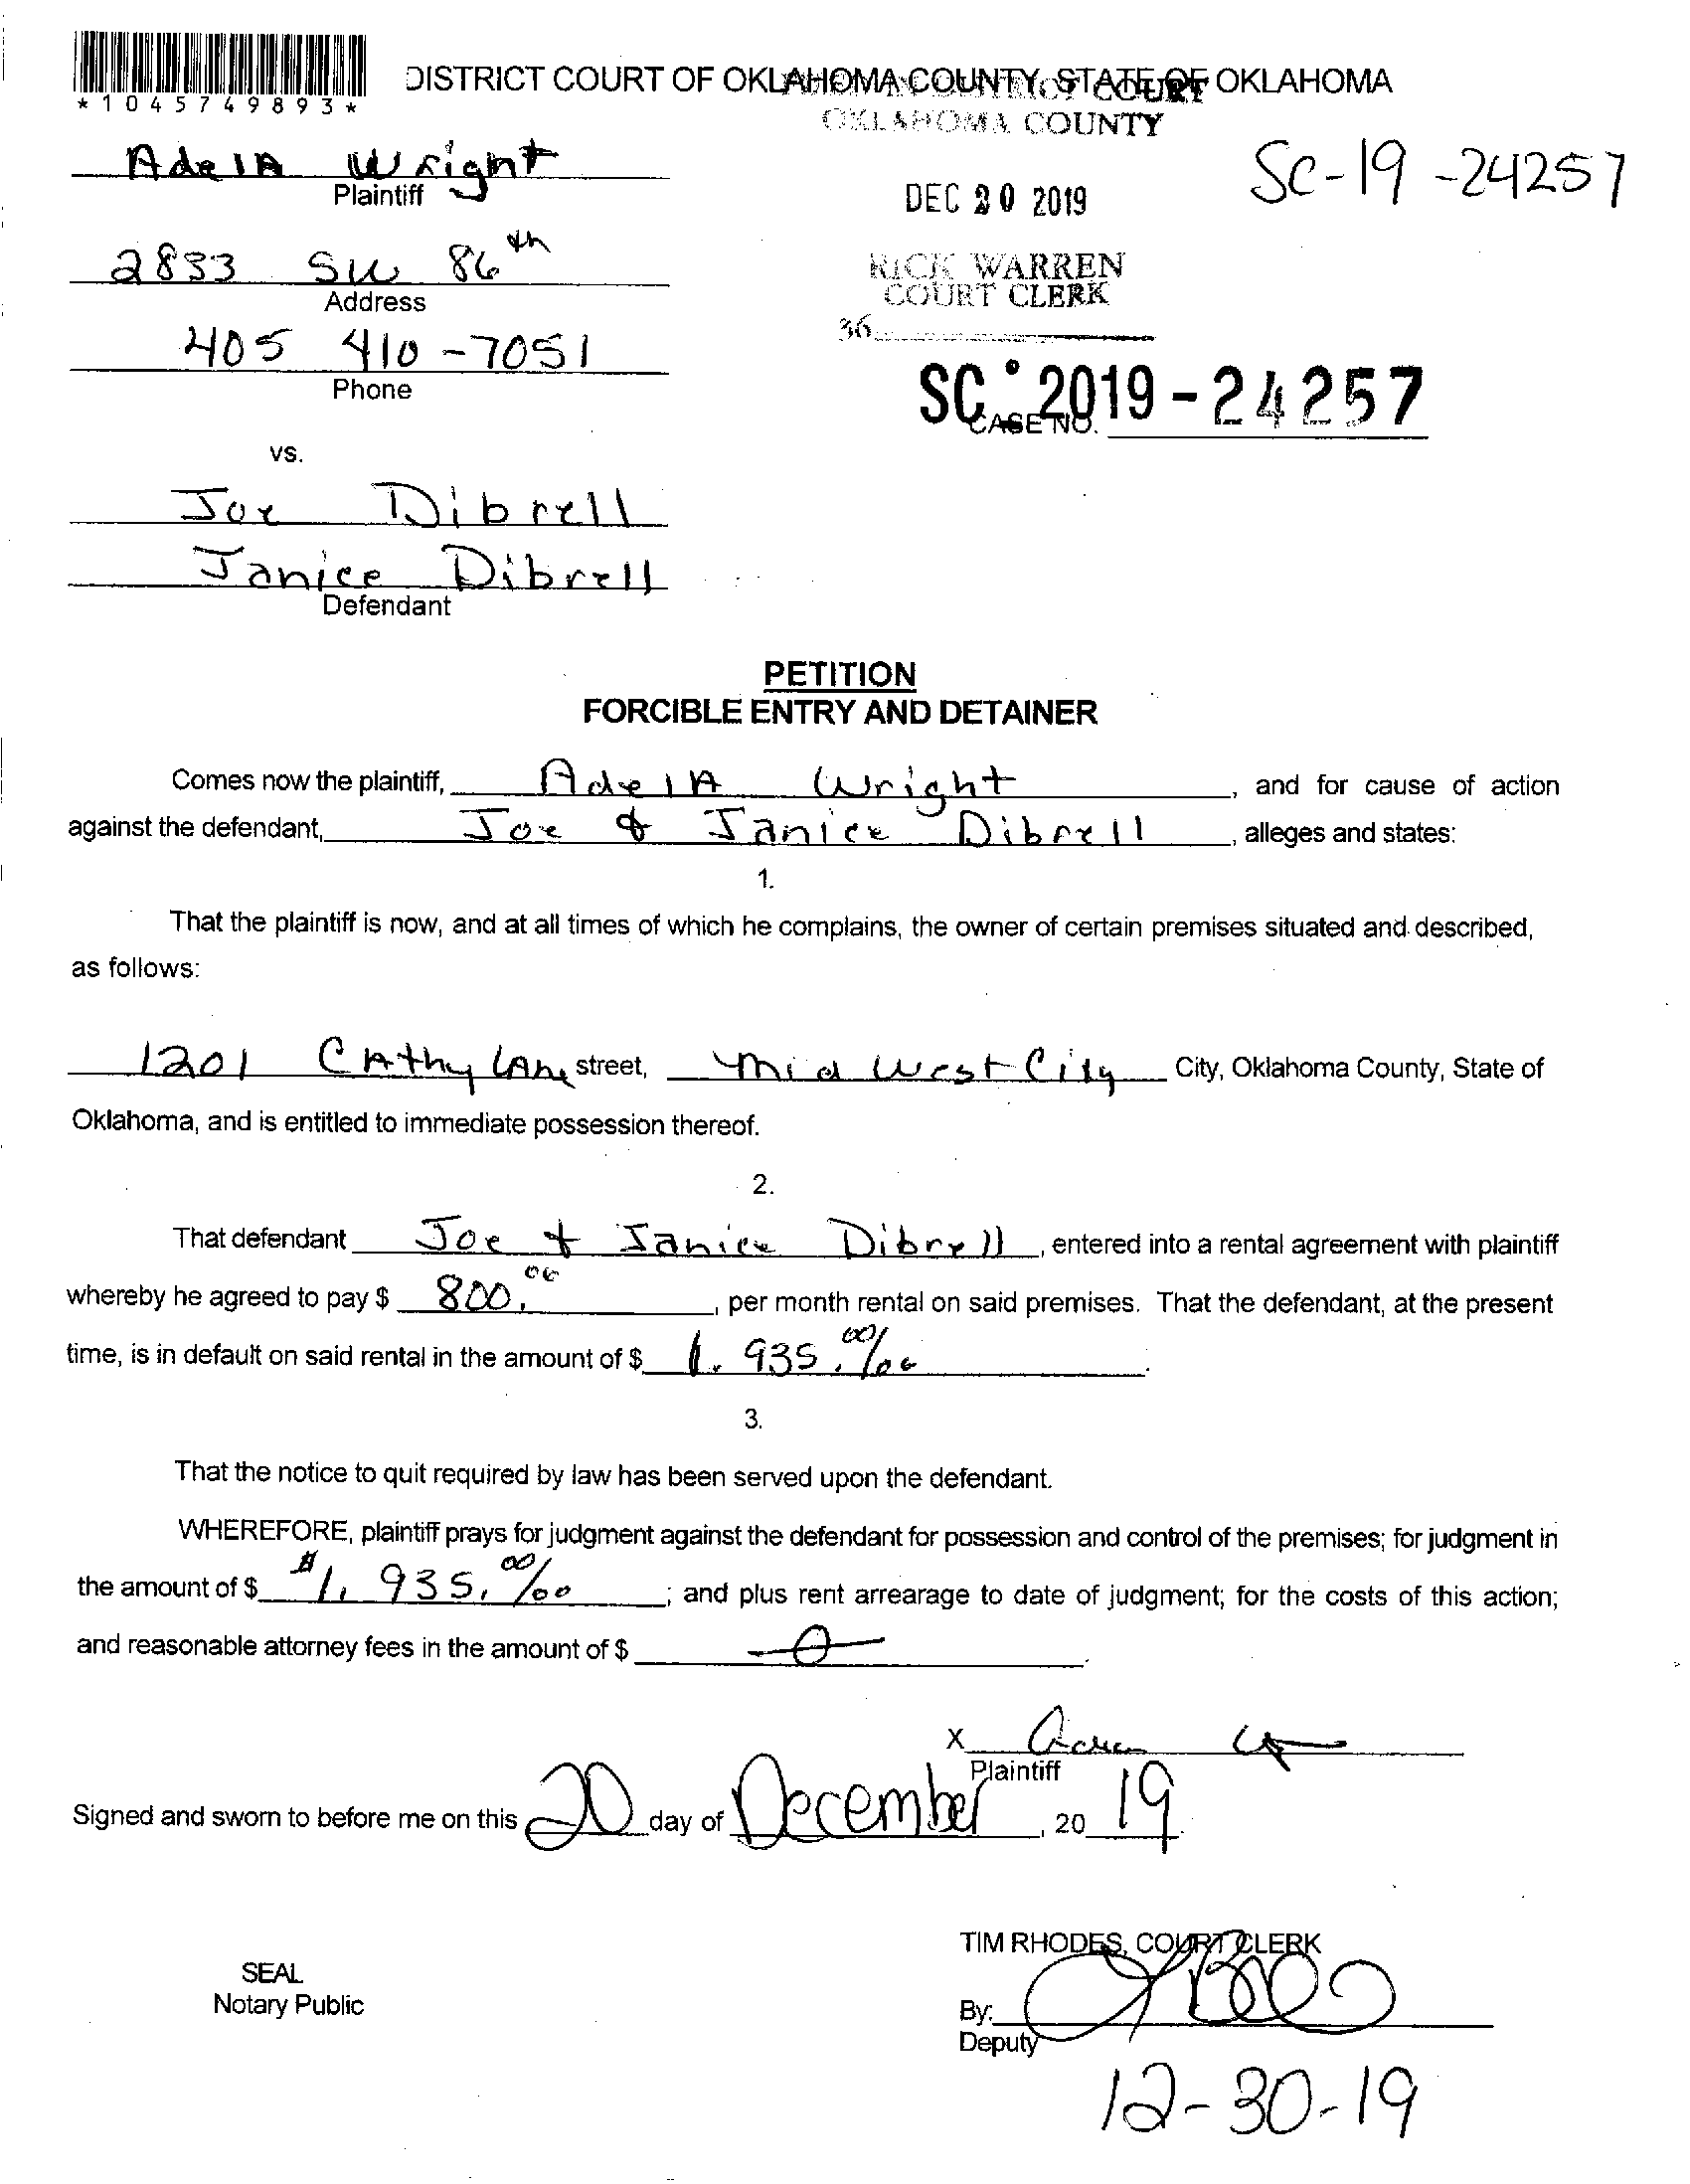 *1045749893*
DISTRICT COURT OF OKLAHOMA COUNTY, STATE OF OKLAHOMA
COURT
OKLAHOMA COUNTY
AdelA Wright
Plaintiff
DEC 20 2019
SC-19-24257
2833 SW 86th
Address
RICK WARREN
COURT CLERK
36
405 410-7051
Phone
SC 2019-24257
CASE NO.
vs.
Joe Dibrell
Janice Dibrell
Defendant
PETITION
FORCIBLE ENTRY AND DETAINER
Comes now the plaintiff, AdelA Wright, and for cause of action
against the defendant, Joe & Janice Dibrell, alleges and states:
1.
That the plaintiff is now, and at all times of which he complains, the owner of certain premises situated and described,
as follows:
1201 CAthy LAne street, Mid West City City, Oklahoma County, State of
Oklahoma, and is entitled to immediate possession thereof.
2.
That defendant Joe + Janice Dibrell, entered into a rental agreement with plaintiff
whereby he agreed to pay $ 800.00, per month rental on said premises. That the defendant, at the present
time, is in default on said rental in the amount of $ 1.935.00/00.
3.
That the notice to quit required by law has been served upon the defendant.
WHEREFORE, plaintiff prays for judgment against the defendant for possession and control of the premises; for judgment in
the amount of $ $1,935.00/00; and plus rent arrearage to date of judgment; for the costs of this action;
and reasonable attorney fees in the amount of $ 0.
X
Plaintiff
Signed and sworn to before me on this 20 day of December, 20 19
TIM RHODES, COURT CLERK
SEAL
Notary Public
By:
Deputy
12-30-19